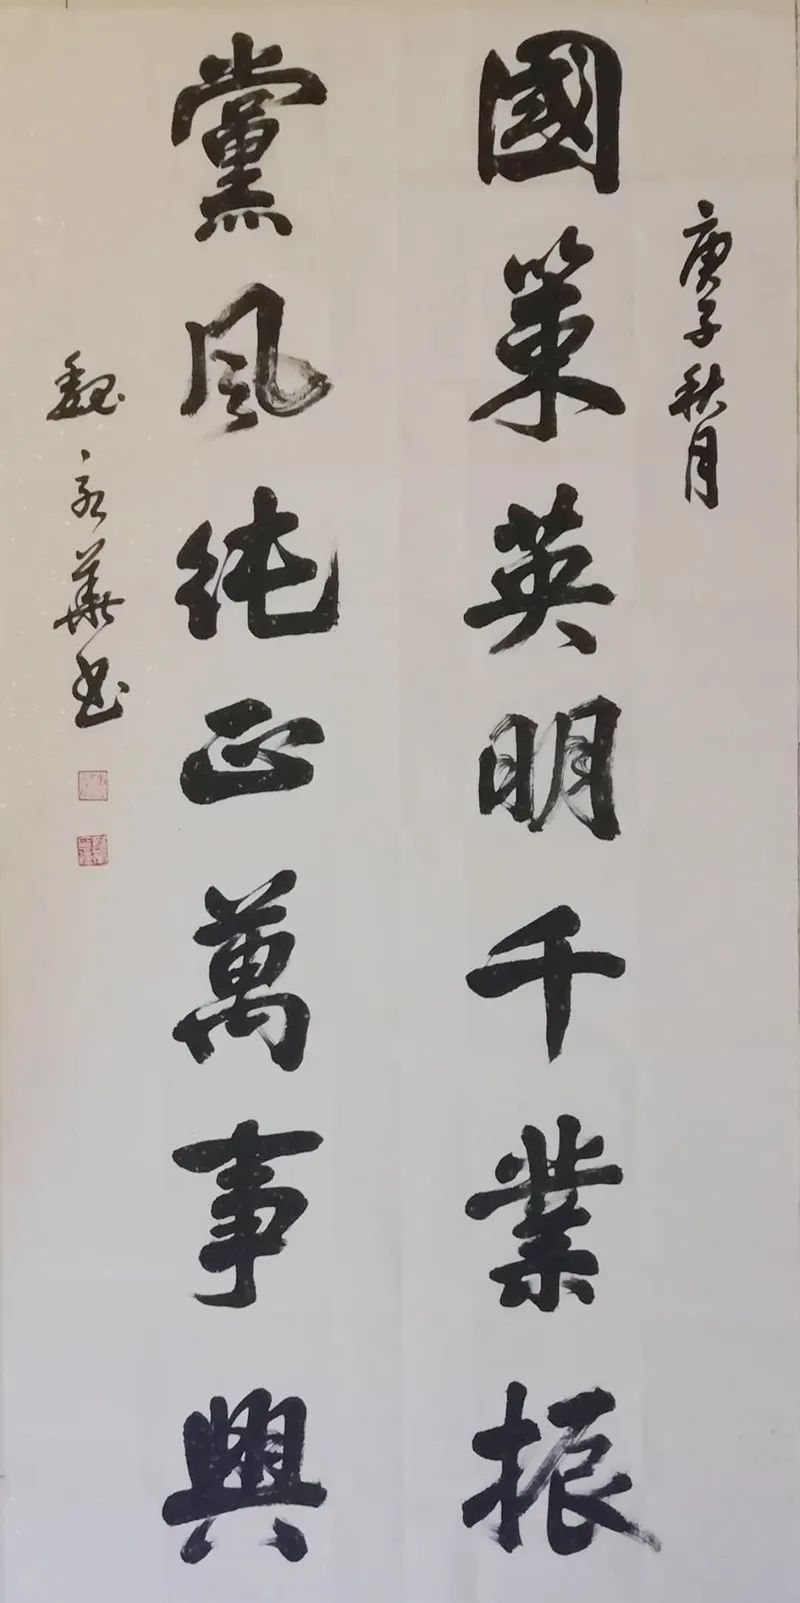 庚子秋月
國策英明千業振
黨風純正萬事興
魏永華书